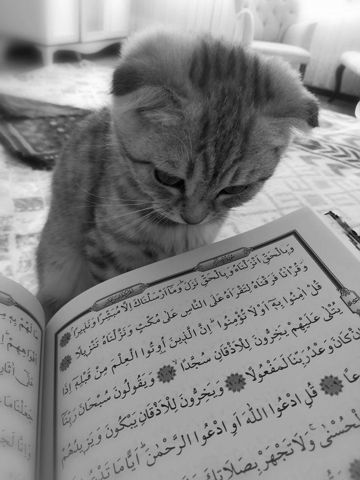 وَبِالْحَقِّ اَنْزَلْنَاهُ وَبِالْحَقِّ نَزَلَۜ وَمَٓا اَرْسَلْنَاكَ اِلَّا مُبَشِّرًا وَنَذ۪يرًاۢ
وَقُرْاٰنًا فَرَقْنَاهُ لِتَقْرَاَهُ عَلَى النَّاسِ عَلٰى مُكْثٍ وَنَزَّلْنَاهُ تَنْز۪يلًا
قُلْ اٰمِنُوا بِه۪ٓ اَوْ لَا تُؤْمِنُواۜ اِنَّ الَّذ۪ينَ اُو۫تُوا الْعِلْمَ مِنْ قَبْلِه۪ٓ اِذَا
يُتْلٰى عَلَيْهِمْ يَخِرُّونَ لِلْاَذْقَانِ سُجَّدًا وَيَقُولُونَ سُبْحَانَ رَبِّنَٓا
كَانَ وَعْدُ رَبِّنَا لَمَفْعُولًا وَيَخِرُّونَ لِلْاَذْقَانِ يَبْكُونَ وَيَز۪يدُهُمْ
قُلِ ادْعُوا اللّٰهَ اَوِ ادْعُوا الرَّحْمٰنَۜ اَيًّا مَا
وَلَا تَجْهَرْ بِصَلَاتِكَ